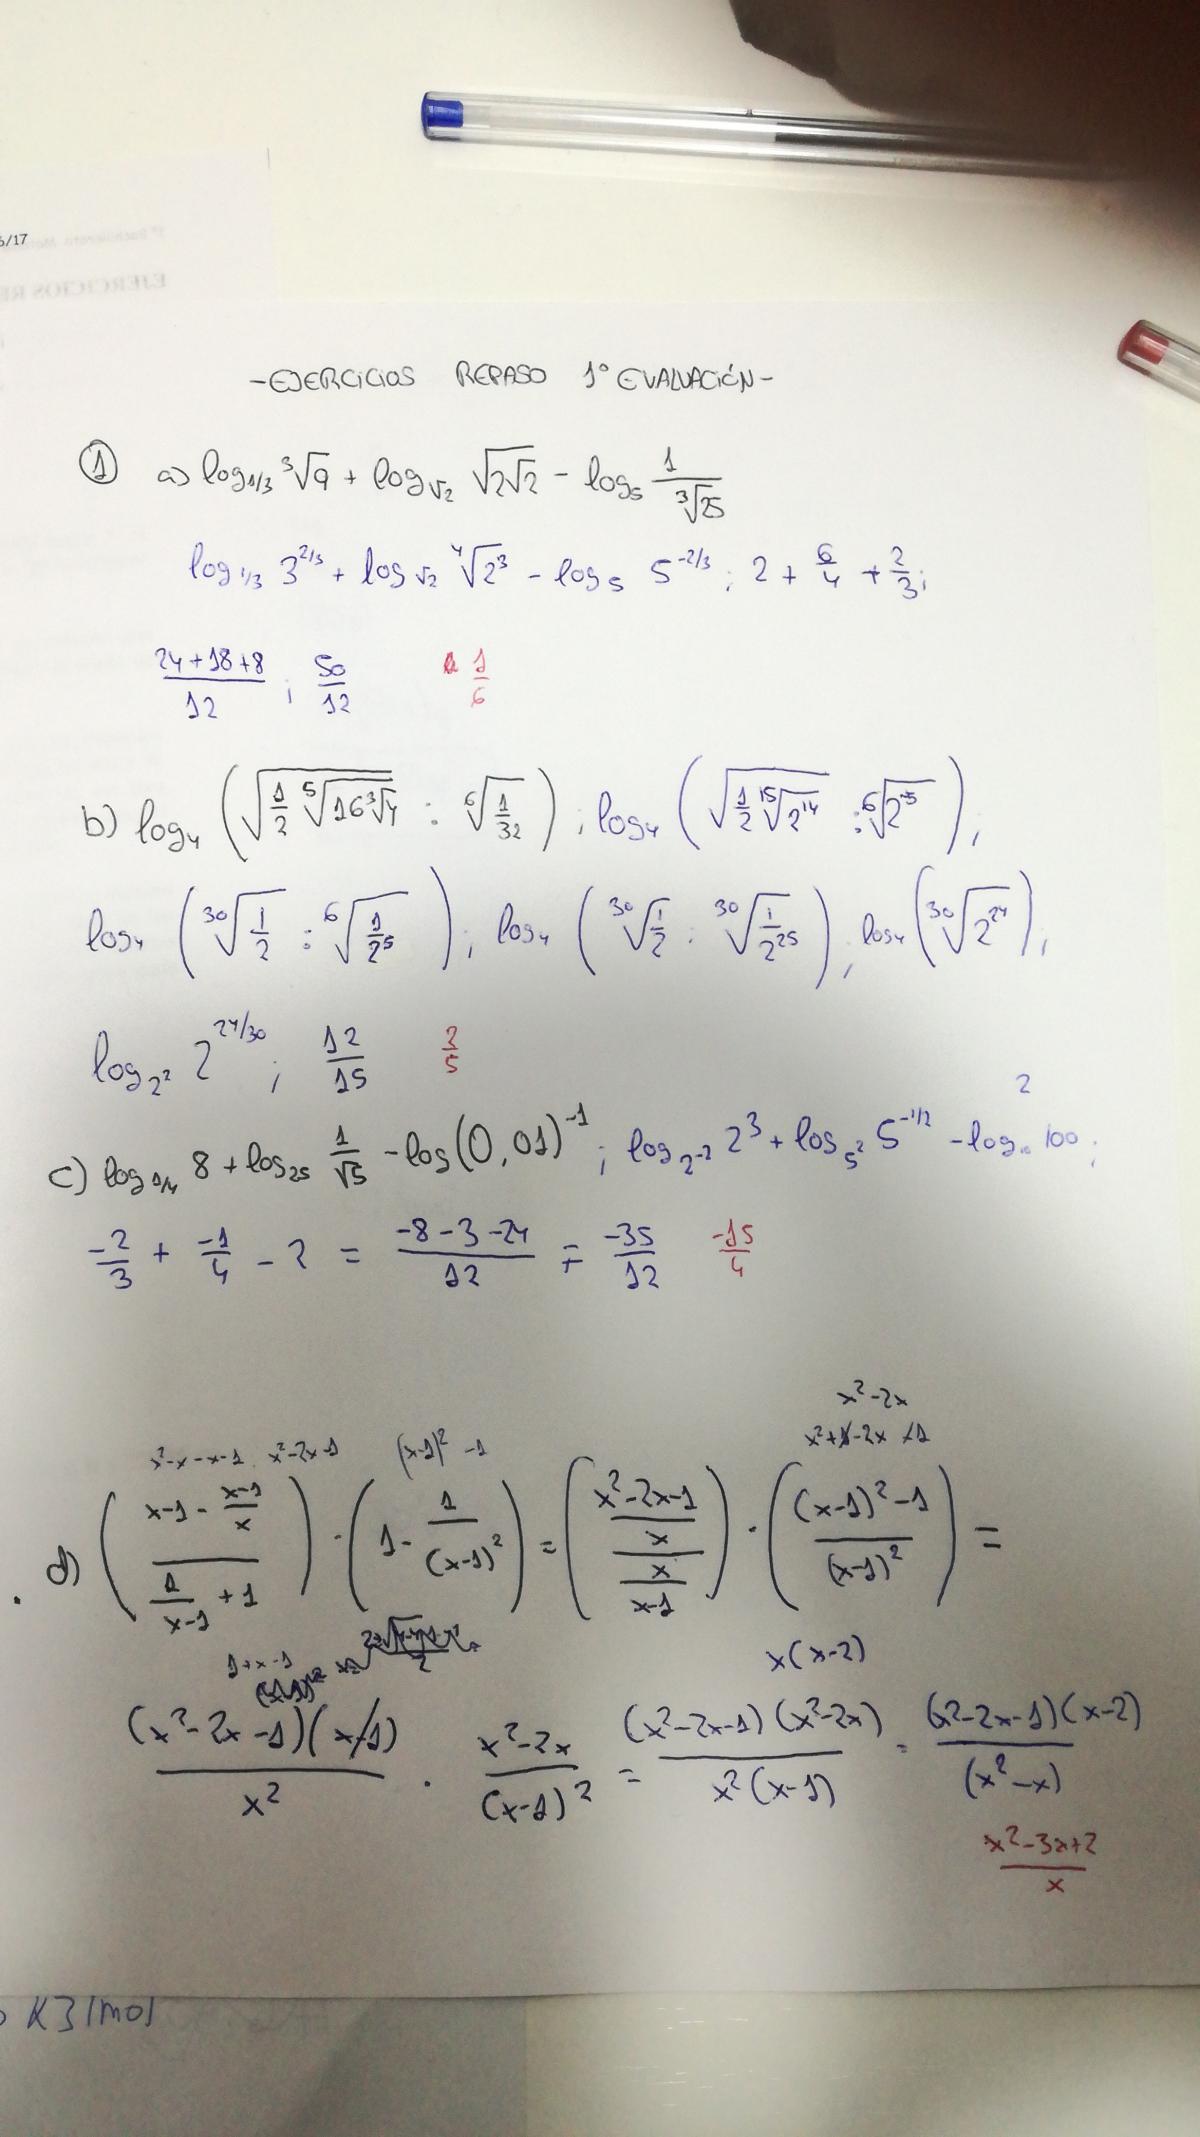 6/17
EJERCICIOS RE
-EJERCICIOS REPASO 1º EVALUACIÓN-
① a) log₁/₃ ³√9 + log√₂ √(2√2) - log₅ 1/³√25
log₁/₃ 3^(2/3) + log√₂ ⁴√(2³) - log₅ 5^(-2/3) ; 2 + 6/4 + 2/3 ;
(24+18+8)/12 ; 50/12 1/6
b) log₄ (√(1/2 ⁵√(16 ³√4)) : ⁶√(1/32)) ; log₄ (√(1/2 ¹⁵√(2¹⁴)) : ⁶√(2⁻⁵)) ;
log₄ (³⁰√(1/2) : ⁶√(1/2⁵)) ; log₄ (³⁰√(1/2) : ³⁰√(1/2²⁵)) ; log₄ (³⁰√(2²⁴)) ;
log₂² 2^(24/30) ; 12/15 2/5
2
c) log₁/₄ 8 + log₂₅ 1/√5 - log(0,01)⁻¹ ; log₂⁻² 2³ + log₅² 5^(-1/2) - log 100 ;
-2/3 + -1/4 - 2 = (-8-3-24)/12 = -35/12 -15/4
x²-2x
x²-x-x-1 x²-2x-1 (x-1)²-1 x²+1-2x-1
d) ((x-1-(x-1)/x)/(1/(x-1)+1)) · (1-1/(x-1)²) = (((x²-2x-1)/x)/(x/(x-1))) · (((x-1)²-1)/(x-1)²) =
1+x-1
x(x-2)
((x²-2x-1)(x-1))/x² · (x²-2x)/(x-1)² = ((x²-2x-1)(x²-2x))/(x²(x-1)) = ((x²-2x-1)(x-2))/(x²-x)
(x²-3x+2)/x
K3/mol